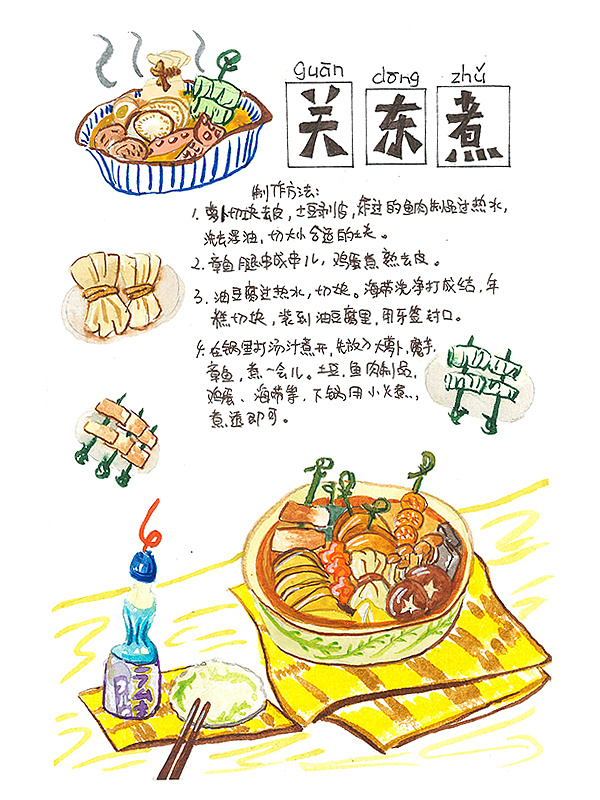 guān dōng zhǔ
关东煮
制作方法:
1. 萝卜切块去皮,土豆剥皮,炸过的鱼肉制品过热水,
洗去浮油,切大小合适的块。
2. 章鱼腿串成串儿,鸡蛋煮熟去皮。
3. 油豆腐过热水,切块。海带洗净打成结,年
糕切块,装到油豆腐里,用牙签封口。
4. 在锅里打汤汁煮开,先放入大萝卜、魔芋,
章鱼,煮一会儿。土豆,鱼肉制品,
鸡蛋、海带等,下锅用小火煮,
煮透即可。
ラムネ